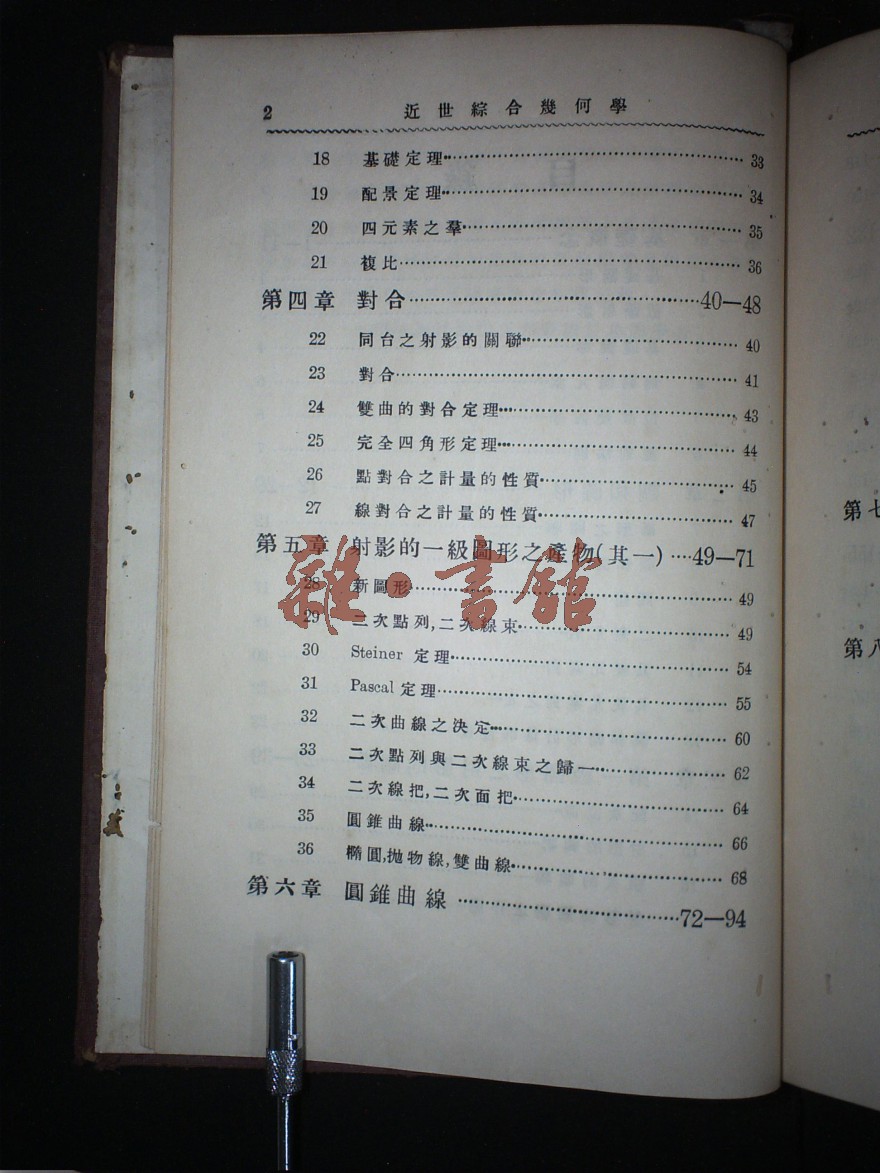 2 近世綜合幾何學
18 基礎定理 33
19 配景定理 34
20 四元素之羣 35
21 複比 36
第四章 對合 40—48
22 同台之射影的關聯 40
23 對合 41
24 雙曲的對合定理 43
25 完全四角形定理 44
26 點對合之計量的性質 45
27 線對合之計量的性質 47
第五章 射影的一級圖形之產物(其一) 49—71
28 新圖形 49
29 二次點列,二次線束 49
30 Steiner 定理 54
31 Pascal 定理 55
32 二次曲線之決定 60
33 二次點列與二次線束之歸一 62
34 二次線把,二次面把 64
35 圓錐曲線 66
36 橢圓,拋物線,雙曲線 68
第六章 圓錐曲線 72—94
雜·書館
第七
第八